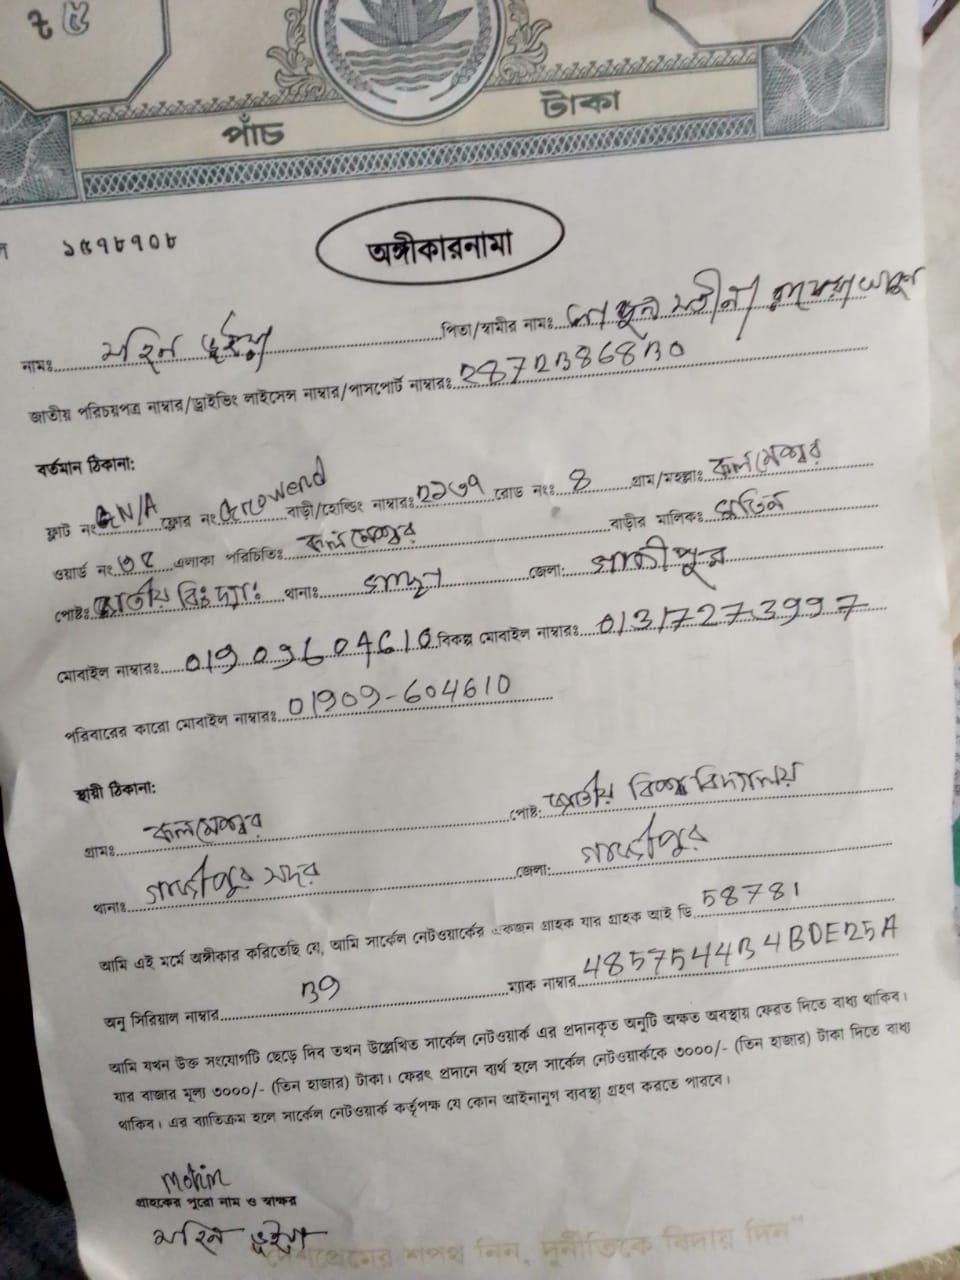 ৳ ৫
পাঁচ টাকা
১৫৭৮৭০৮
অঙ্গীকারনামা
নামঃ মহিন ভূইয়া পিতা/স্বামীর নামঃ
জাতীয় পরিচয়পত্র নাম্বার/ড্রাইভিং লাইসেন্স নাম্বার/পাসপোর্ট নাম্বারঃ
বর্তমান ঠিকানা:
ফ্লাট নংঃ N/A ফ্লোর নংঃ বাড়ী/হোল্ডিং নাম্বারঃ রোড নংঃ 8 গ্রাম/মহল্লাঃ কলমেশ্বর
ওয়ার্ড নং এলাকা পরিচিতিঃ কলমেশ্বর বাড়ীর মালিকঃ
পোষ্টঃ জাতীয় বিঃ দ্যাঃ থানাঃ গাছা জেলা: গাজীপুর
মোবাইল নাম্বারঃ 01909604610 বিকল্প মোবাইল নাম্বারঃ 01317273997
পরিবারের কারো মোবাইল নাম্বারঃ 01909-604610
স্থায়ী ঠিকানা:
গ্রামঃ কলমেশ্বর পোষ্ট: জাতীয় বিশ্ববিদ্যালয়
থানাঃ গাজীপুর সদর জেলা: গাজীপুর
আমি এই মর্মে অঙ্গীকার করিতেছি যে, আমি সার্কেল নেটওয়ার্কের একজন গ্রাহক যার গ্রাহক আই ডি 58781
অনু সিরিয়াল নাম্বার ম্যাক নাম্বার
আমি যখন উক্ত সংযোগটি ছেড়ে দিব তখন উল্লেখিত সার্কেল নেটওয়ার্ক এর প্রদানকৃত অনুটি অক্ষত অবস্থায় ফেরত দিতে বাধ্য থাকিব।
যার বাজার মূল্য ৩০০০/- (তিন হাজার) টাকা। ফেরৎ প্রদানে ব্যর্থ হলে সার্কেল নেটওয়ার্ককে ৩০০০/- (তিন হাজার) টাকা দিতে বাধ্য
থাকিব। এর ব্যাতিক্রম হলে সার্কেল নেটওয়ার্ক কর্তৃপক্ষ যে কোন আইনানুগ ব্যবস্থা গ্রহণ করতে পারবে।
Mohin
গ্রাহকের পুরো নাম ও স্বাক্ষর
মহিন ভূইয়া
দেশপ্রেমের শপথ নিন, দুর্নীতিকে বিদায় দিন"